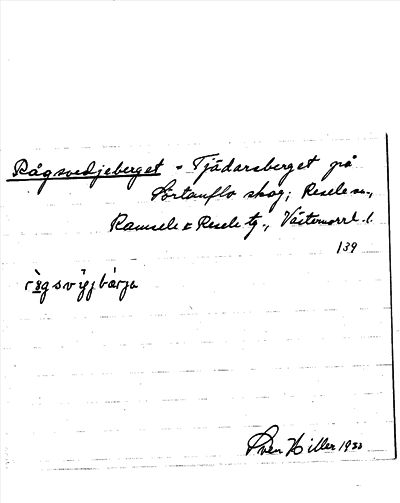 Rågsvedjeberget = Tjädarsberget på
Sörtanflo skog; Resele sn.,
Ramsele & Resele tg., Västernorrl. l.
139
Sven Hiller 1930